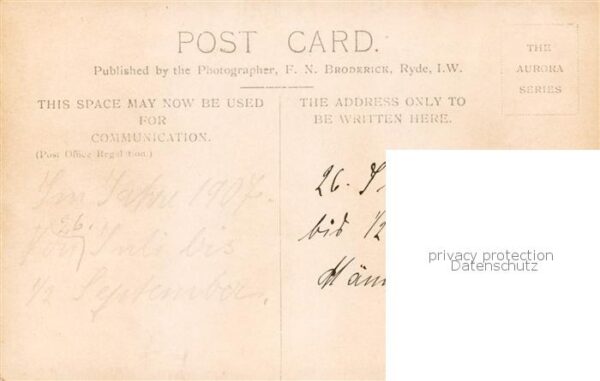 POST CARD.
Published by the Photographer, F. N. BRODERICK, Ryde, I.W.
THE
AURORA
SERIES
THIS SPACE MAY NOW BE USED
FOR
COMMUNICATION.
(Post Office Regulation.)
Im Jahre 1907.
26.
Vom Juli bis
1/2 September.
THE ADDRESS ONLY TO
BE WRITTEN HERE.
26. J
bis 1/2
Män
privacy protection
Datenschutz